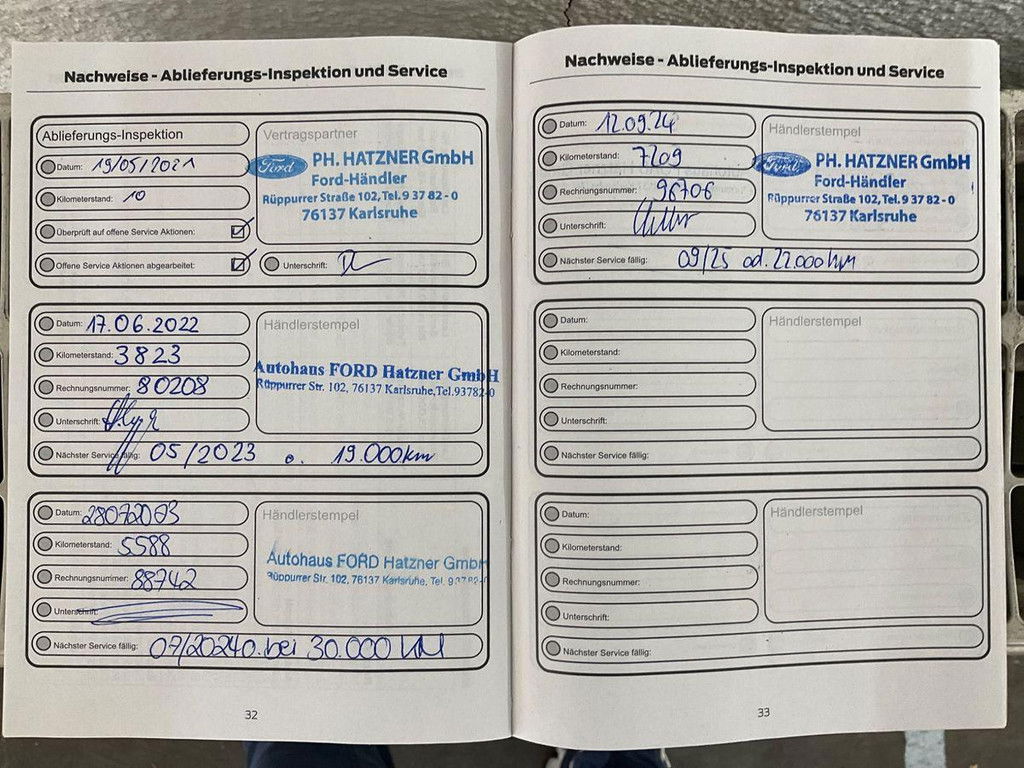 Nachweise - Ablieferungs-Inspektion und Service
Ablieferungs-Inspektion
Datum: 19/05/2021
Kilometerstand: 10
Überprüft auf offene Service Aktionen:
Offene Service Aktionen abgearbeitet:
Vertragspartner
Ford
PH. HATZNER GmbH
Ford-Händler
Rüppurrer Straße 102, Tel. 9 37 82 - 0
76137 Karlsruhe
Unterschrift:
Datum: 17.06.2022
Kilometerstand: 3823
Rechnungsnummer: 80208
Unterschrift:
Nächster Service fällig: 05/2023 o. 19.000km
Händlerstempel
Autohaus FORD Hatzner GmbH
Rüppurrer Str. 102, 76137 Karlsruhe, Tel. 93782-0
Datum: 28072023
Kilometerstand: 5588
Rechnungsnummer: 88742
Unterschrift:
Nächster Service fällig: 07/2024 o. bei 30.000 KM
Händlerstempel
Autohaus FORD Hatzner GmbH
Rüppurrer Str. 102, 76137 Karlsruhe, Tel.
32
Nachweise - Ablieferungs-Inspektion und Service
Datum: 12.09.24
Kilometerstand: 7209
Rechnungsnummer: 98706
Unterschrift:
Nächster Service fällig: 09/25 od. 22.000 km
Händlerstempel
Ford
PH. HATZNER GmbH
Ford-Händler
Rüppurrer Straße 102, Tel. 9 37 82 - 0
76137 Karlsruhe
Datum:
Kilometerstand:
Rechnungsnummer:
Unterschrift:
Nächster Service fällig:
Händlerstempel
Datum:
Kilometerstand:
Rechnungsnummer:
Unterschrift:
Nächster Service fällig:
Händlerstempel
33